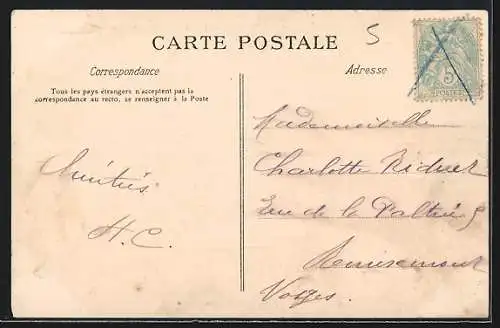 5
CARTE POSTALE
Correspondance
Adresse
Tous les pays étrangers n'acceptent pas la
correspondance au recto, se renseigner à la Poste
5
POSTES
Mademoiselle
Charlotte
de la
Remiremont
Vosges.
Amitiés
H. C.